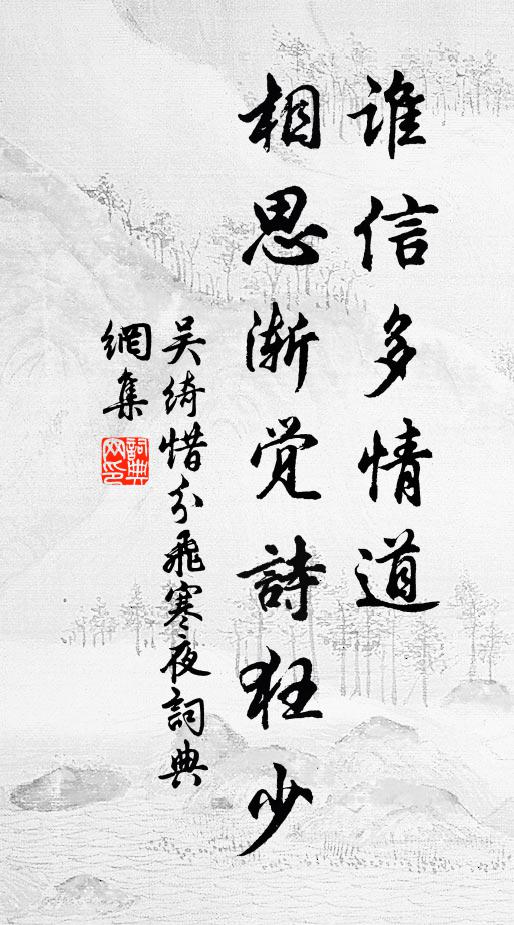 誰信多情道
相思渐觉詩狂少
吴绮惜分飛寒夜詞典
網集
詞典網印